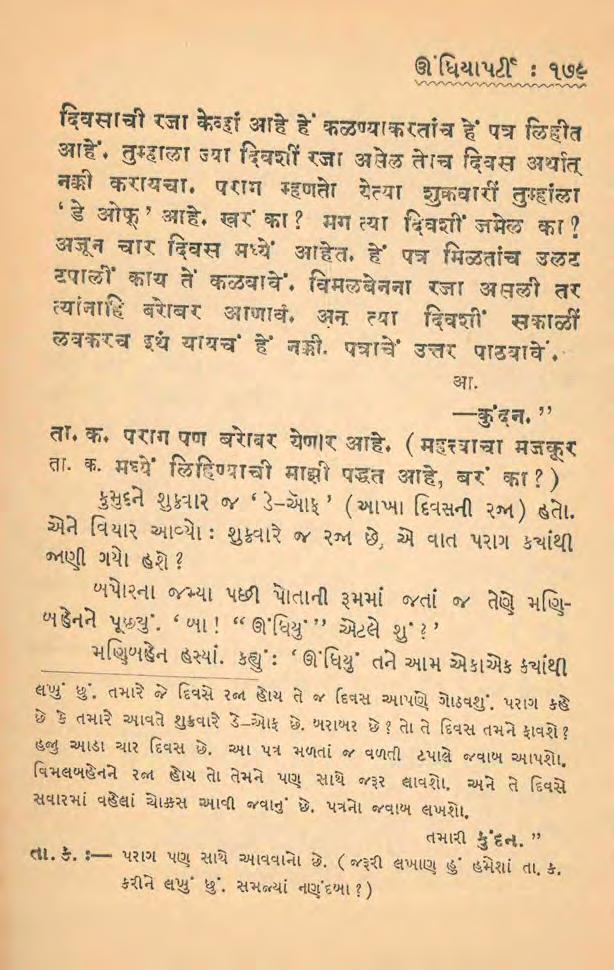 ઊંધિયાપર્ટી : ૧૭૯
દિવસાची रजा केव्हां आहे हें कळण्याकरतांच हें पत्र लिहीत
आहें. तुम्हाला ज्या दिवशीं रजा असेल तोच दिवस अर्थात्
नक्की करायचा. पराग म्हणतो येत्या शुक्रवारीं तुम्हांला
‘ डे ओफ् ’ आहे. खरं का ? मग त्या दिवशीं जमेल का ?
अजून चार दिवस मध्यें आहेत. हें पत्र मिळतांच उलट
टपालीं काय तें कळवावें. विमलबेनना रजा असली तर
त्यांनाहि बरोबर आणावं. अन् त्या दिवशीं सकाळीं
लवकरच इथं यायचं हें नक्की. पत्राचें उत्तर पाठवावें.
आ.
—कुंदन. ”
ता. क. पराग पण बरोबर येणार आहे. ( महत्त्वाचा मजकूर
ता. क. मध्यें लिहिण्याची माझी पद्धत आहे, बरं का ? )
કુમુદને શુક્રવાર જ ‘ ડે-ઑફ ’ ( આખા દિવસની રજા ) હતો.
એને વિચાર આવ્યો : શુક્રવારે જ રજા છે, એ વાત પરાગ કયાંથી
જાણી ગયો હશે ?
બપોરના જમ્યા પછી પોતાની રૂમમાં જતાં જ તેણે મણિ-
બહેનને પૂછ્યું. ‘ બા ! “ ઊંધિયું ” એટલે શું ? ’
મણિબહેન હસ્યાં. કહ્યું : ‘ ઊંધિયું તને આમ એકાએક કયાંથી
લખું છું. તમારે જે દિવસે રજા હોય તે જ દિવસ આપણે ગોઠવશું. પરાગ કહે
છે કે તમારે આવતે શુક્રવારે ડે-ઑફ છે. બરાબર છે ? તો તે દિવસ તમને ફાવશે ?
હજુ આડા ચાર દિવસ છે. આ પત્ર મળતાં જ વળતી ટપાલે જવાબ આપશો.
વિમલબહેનને રજા હોય તો તેમને પણ સાથે જરૂર લાવશો. અને તે દિવસે
સવારમાં વહેલાં ચોક્કસ આવી જવાનું છે. પત્રનો જવાબ લખશો.
તમારી કુંદન. ”
તા. ક. :— પરાગ પણ સાથે આવવાનો છે. ( જરૂરી લખાણ હું હંમેશાં તા. ક.
કરીને લખું છું. સમજ્યાં નણંદબા ? )